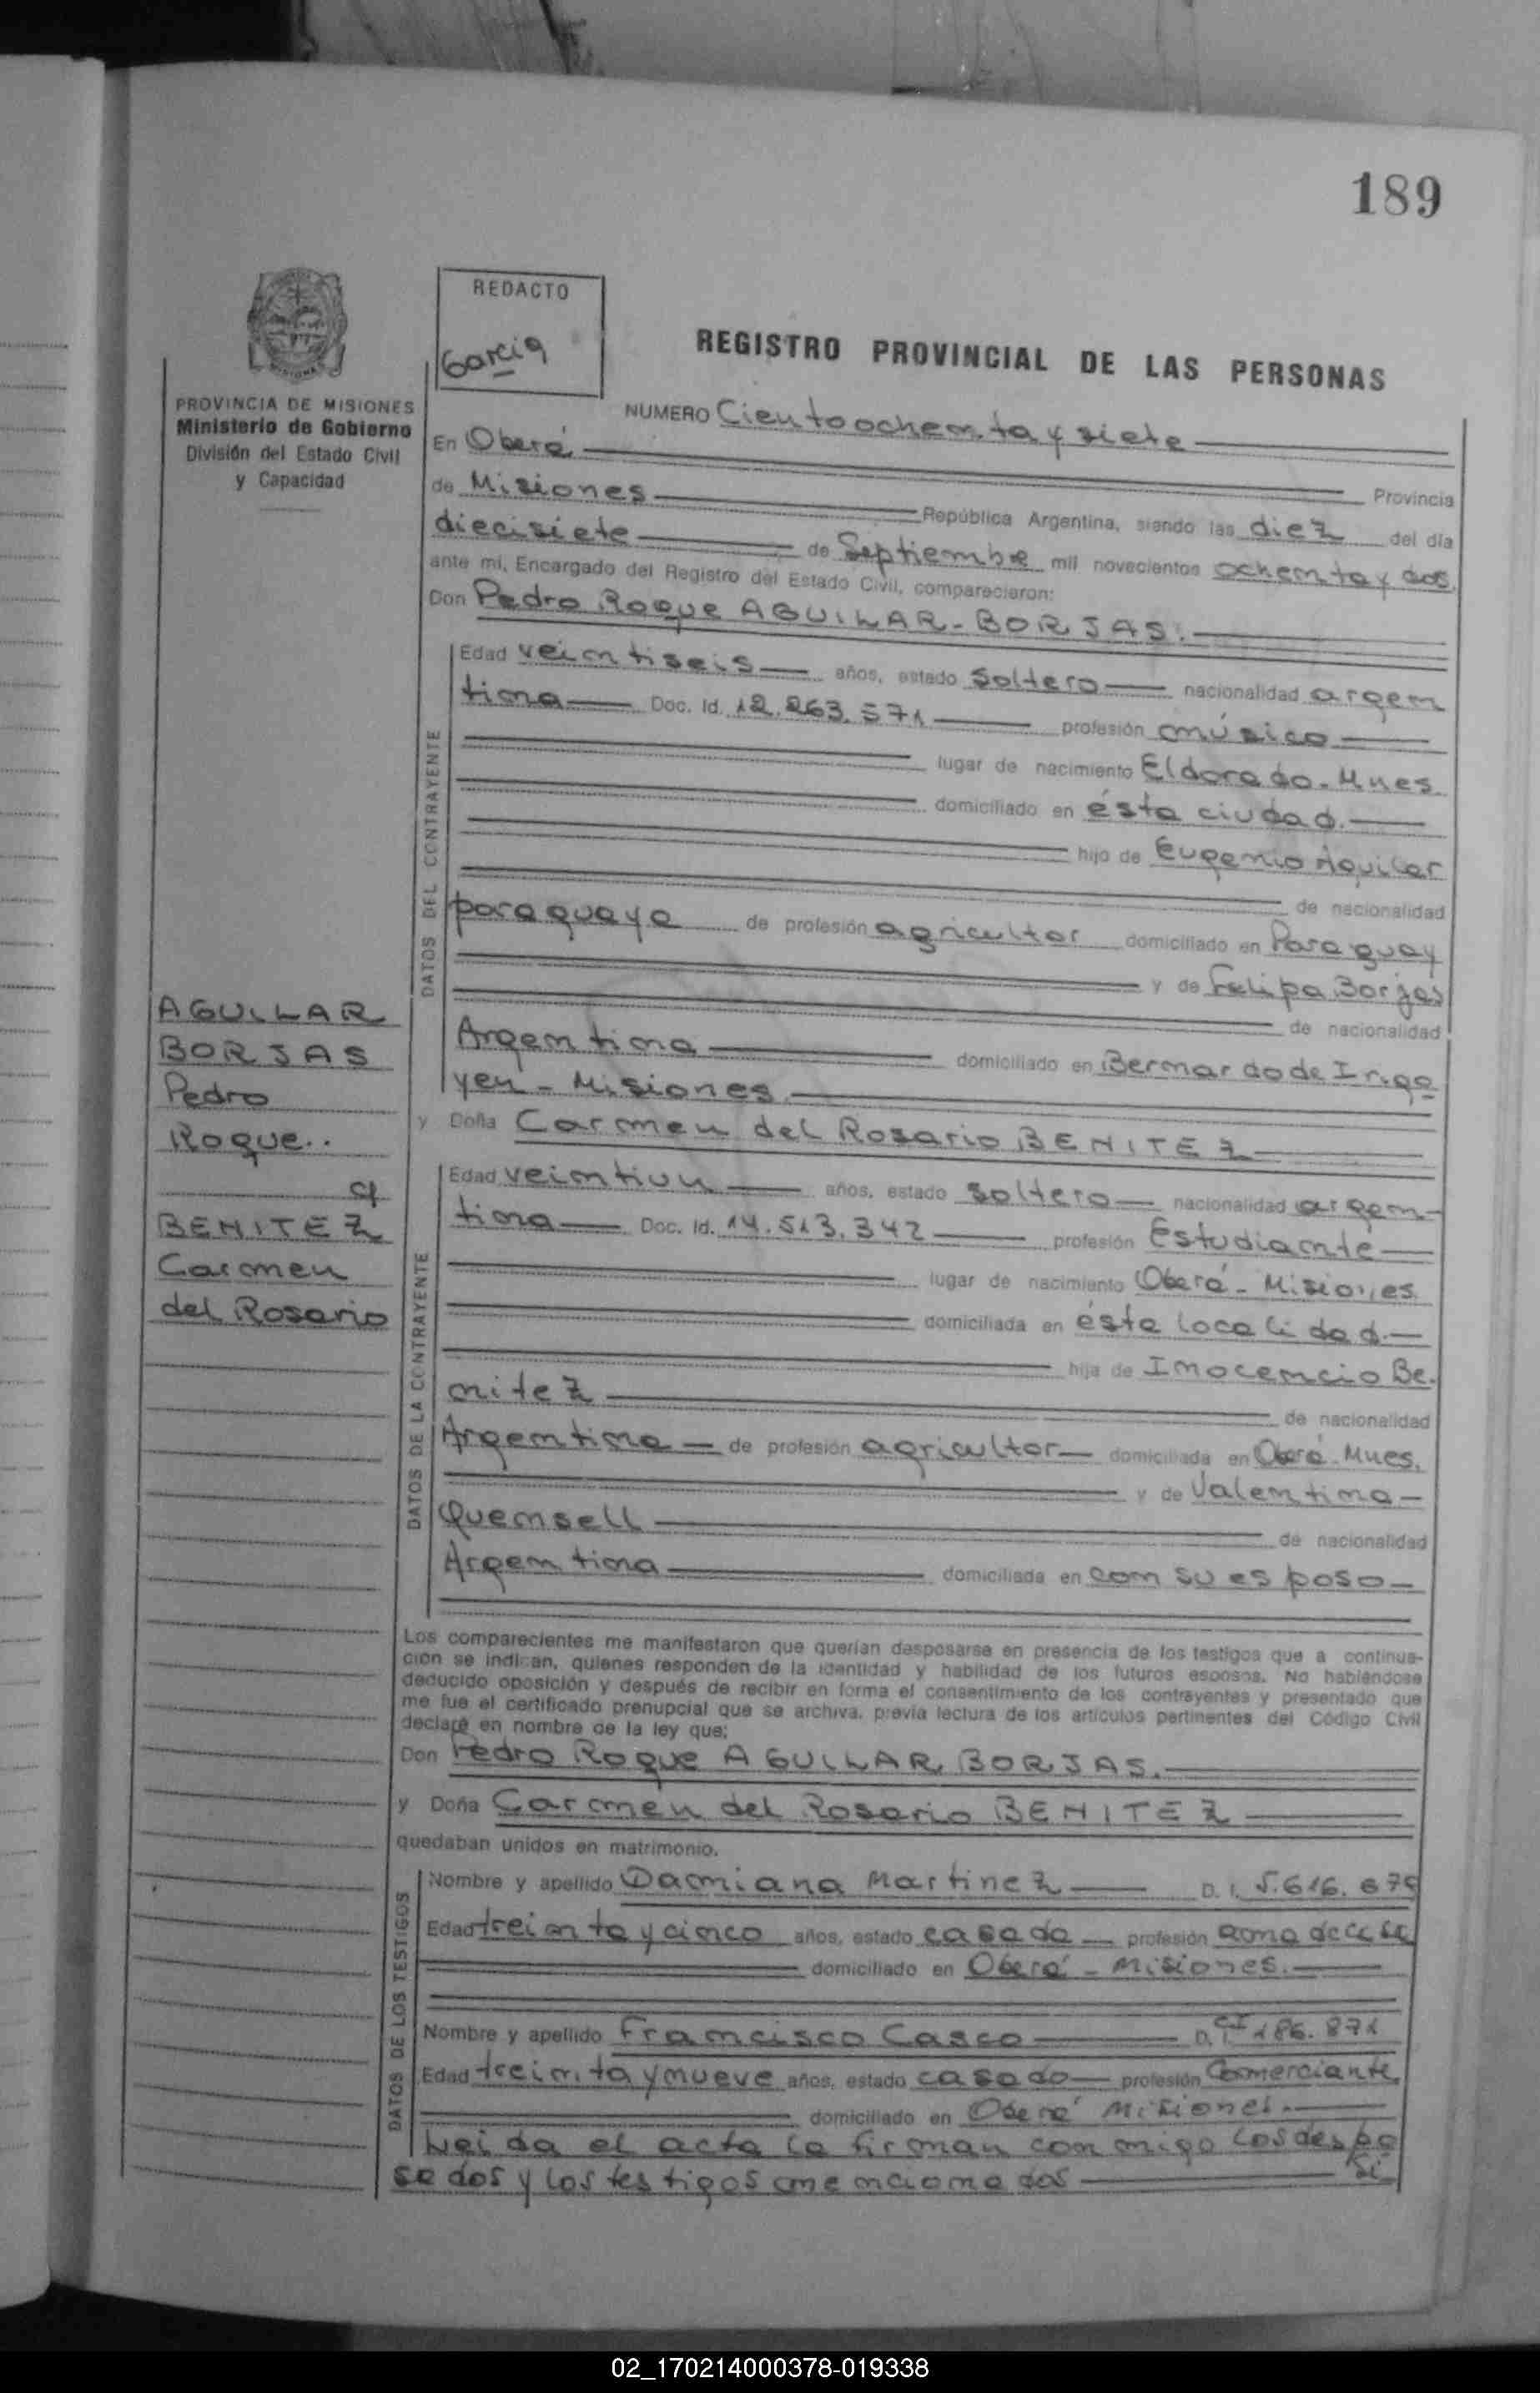 189
REDACTO
Garcia
REGISTRO PROVINCIAL DE LAS PERSONAS
PROVINCIA DE MISIONES
Ministerio de Gobierno
División del Estado Civil
y Capacidad
NUMERO Ciento ochenta y siete
En Oberá
Provincia
de Misiones República Argentina, siendo las diez del día
diecisiete de Septiembre mil novecientos ochenta y dos
ante mi, Encargado del Registro del Estado Civil, comparecieron:
Don Pedro Roque AGUILAR-BORJAS.
DATOS DEL CONTRAYENTE
Edad veintiseis años, estado soltero nacionalidad argen
tina Doc. Id. 12.263.571 profesión músico
lugar de nacimiento Eldorado-Mnes.
domiciliado en ésta ciudad.
hijo de Eugenio Aguilar
de nacionalidad
paraguaya de profesión agricultor domiciliado en Paraguay
y de Felipa Borjas
de nacionalidad
Argentina domiciliado en Bernardo de Irigo
yen - Misiones
AGUILAR
BORJAS
Pedro
Roque..
c/
BENITEZ
Carmen
del Rosario
y Doña Carmen del Rosario BENITEZ
DATOS DE LA CONTRAYENTE
Edad veintiun años, estado soltero nacionalidad argen-
tina Doc. Id. 14.513.342 profesión Estudiante
lugar de nacimiento Oberá - Misiones
domiciliada en ésta localidad.
hija de Inocencio Be.
nitez
de nacionalidad
Argentina de profesión agricultor domiciliada en Oberá-Mnes.
y de Valentina
Quensell
de nacionalidad
Argentina domiciliada en con su esposo
Los comparecientes me manifestaron que querían desposarse en presencia de los testigos que a continua-
ción se indican, quienes responden de la identidad y habilidad de los futuros esposos. No habiéndose
deducido oposición y después de recibir en forma el consentimiento de los contrayentes y presentado que
me fue el certificado prenupcial que se archiva, previa lectura de los artículos pertinentes del Código Civil
declaré en nombre de la ley que:
Don Pedro Roque AGUILAR, BORJAS.
y Doña Carmen del Rosario BENITEZ
quedaban unidos en matrimonio.
DATOS DE LOS TESTIGOS
Nombre y apellido Damiana Martinez D. I. 5.616.679
Edad treinta y cinco años, estado casada profesión ama de casa
domiciliado en Oberá - Misiones.
Nombre y apellido Francisco Casco D. I. CI 186.871
Edad treinta y nueve años, estado casado profesión Comerciante
domiciliado en Oberá Misiones.
Leida el acta la firman conmigo los despo
sados y los testigos mencionados
Si
02_170214000378-019338